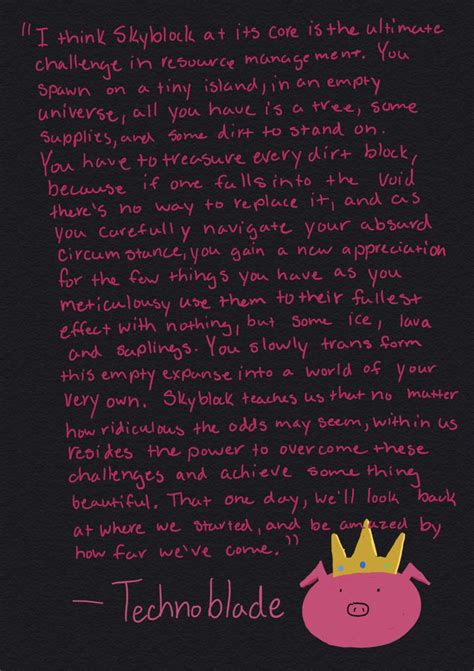 "I think Skyblock at its core is the ultimate
challenge in resource management. You
spawn on a tiny island, in an empty
universe, all you have is a tree, some
supplies, and some dirt to stand on.
You have to treasure every dirt block,
because if one falls into the void
there's no way to replace it, and as
you carefully navigate your absurd
circumstance, you gain a new appreciation
for the few things you have as you
meticulousy use them to their fullest
effect with nothing, but some ice, lava
and saplings. You slowly transform
this empty expanse into a world of your
very own. Skyblock teaches us that no matter
how ridiculous the odds may seem, within us
resides the power to overcome these
challenges and achieve something
beautiful. That one day, we'll look back
at where we started, and be amazed by
how far we've come."
— Technoblade